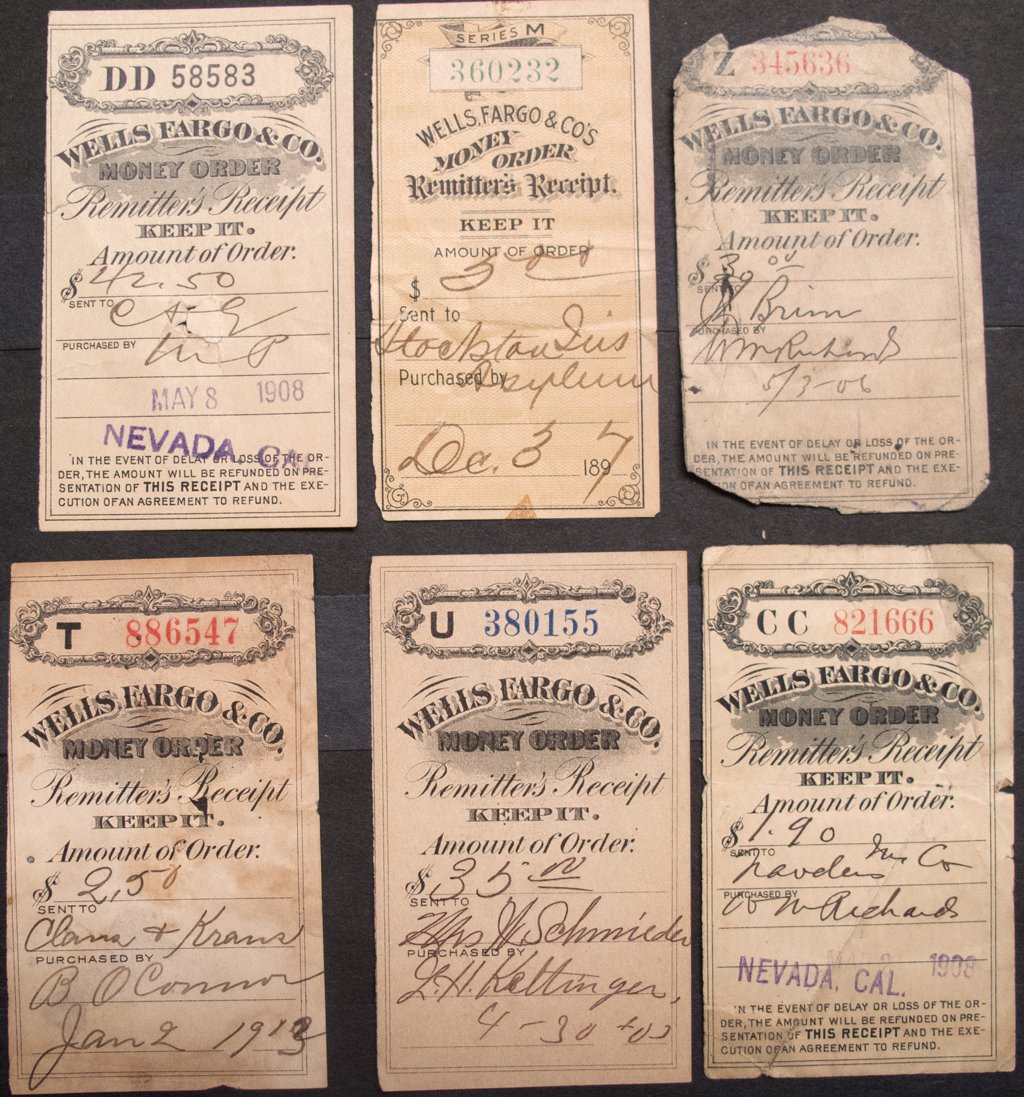 DD 58583
WELLS FARGO & CO.
MONEY ORDER
Remitter's Receipt
KEEP IT.
Amount of Order.
$ 42.50
SENT TO
PURCHASED BY
MAY 8 1908
NEVADA, CAL.
IN THE EVENT OF DELAY OR LOSS OF THE OR-
DER, THE AMOUNT WILL BE REFUNDED ON PRE-
SENTATION OF THIS RECEIPT AND THE EXE-
CUTION OF AN AGREEMENT TO REFUND.
SERIES M
360232
WELLS, FARGO & CO'S
MONEY
ORDER
Remitter's Receipt.
KEEP IT
AMOUNT OF ORDER
$ 5 00
Sent to
Stockton Ins
Purchased by
Asylum
Dec. 3 1897
Z 345636
WELLS FARGO & CO.
MONEY ORDER
Remitter's Receipt
KEEP IT.
Amount of Order.
$ 3 00
SENT TO
Brim
PURCHASED BY
Wm Richards
5/3-06
IN THE EVENT OF DELAY OR LOSS OF THE OR-
DER, THE AMOUNT WILL BE REFUNDED ON PRE-
SENTATION OF THIS RECEIPT AND THE EXE-
CUTION OF AN AGREEMENT TO REFUND.
T 886547
WELLS FARGO & CO.
MONEY ORDER
Remitter's Receipt
KEEP IT.
Amount of Order.
$ 2,50
SENT TO
Clama & Krans
PURCHASED BY
B O'Connor
Jan 2 1913
U 380155
WELLS FARGO & CO.
MONEY ORDER
Remitter's Receipt
KEEP IT.
Amount of Order.
$ 35 00
SENT TO
Mrs H Schmieder
PURCHASED BY
L.H. Kettinger,
4-30-03
CC 821666
WELLS FARGO & CO.
MONEY ORDER
Remitter's Receipt
KEEP IT.
Amount of Order.
$ 1.90
SENT TO
Travelers Ins Co
PURCHASED BY
W W Richards
1908
NEVADA, CAL.
IN THE EVENT OF DELAY OR LOSS OF THE OR-
DER, THE AMOUNT WILL BE REFUNDED ON PRE-
SENTATION OF THIS RECEIPT AND THE EXE-
CUTION OF AN AGREEMENT TO REFUND.